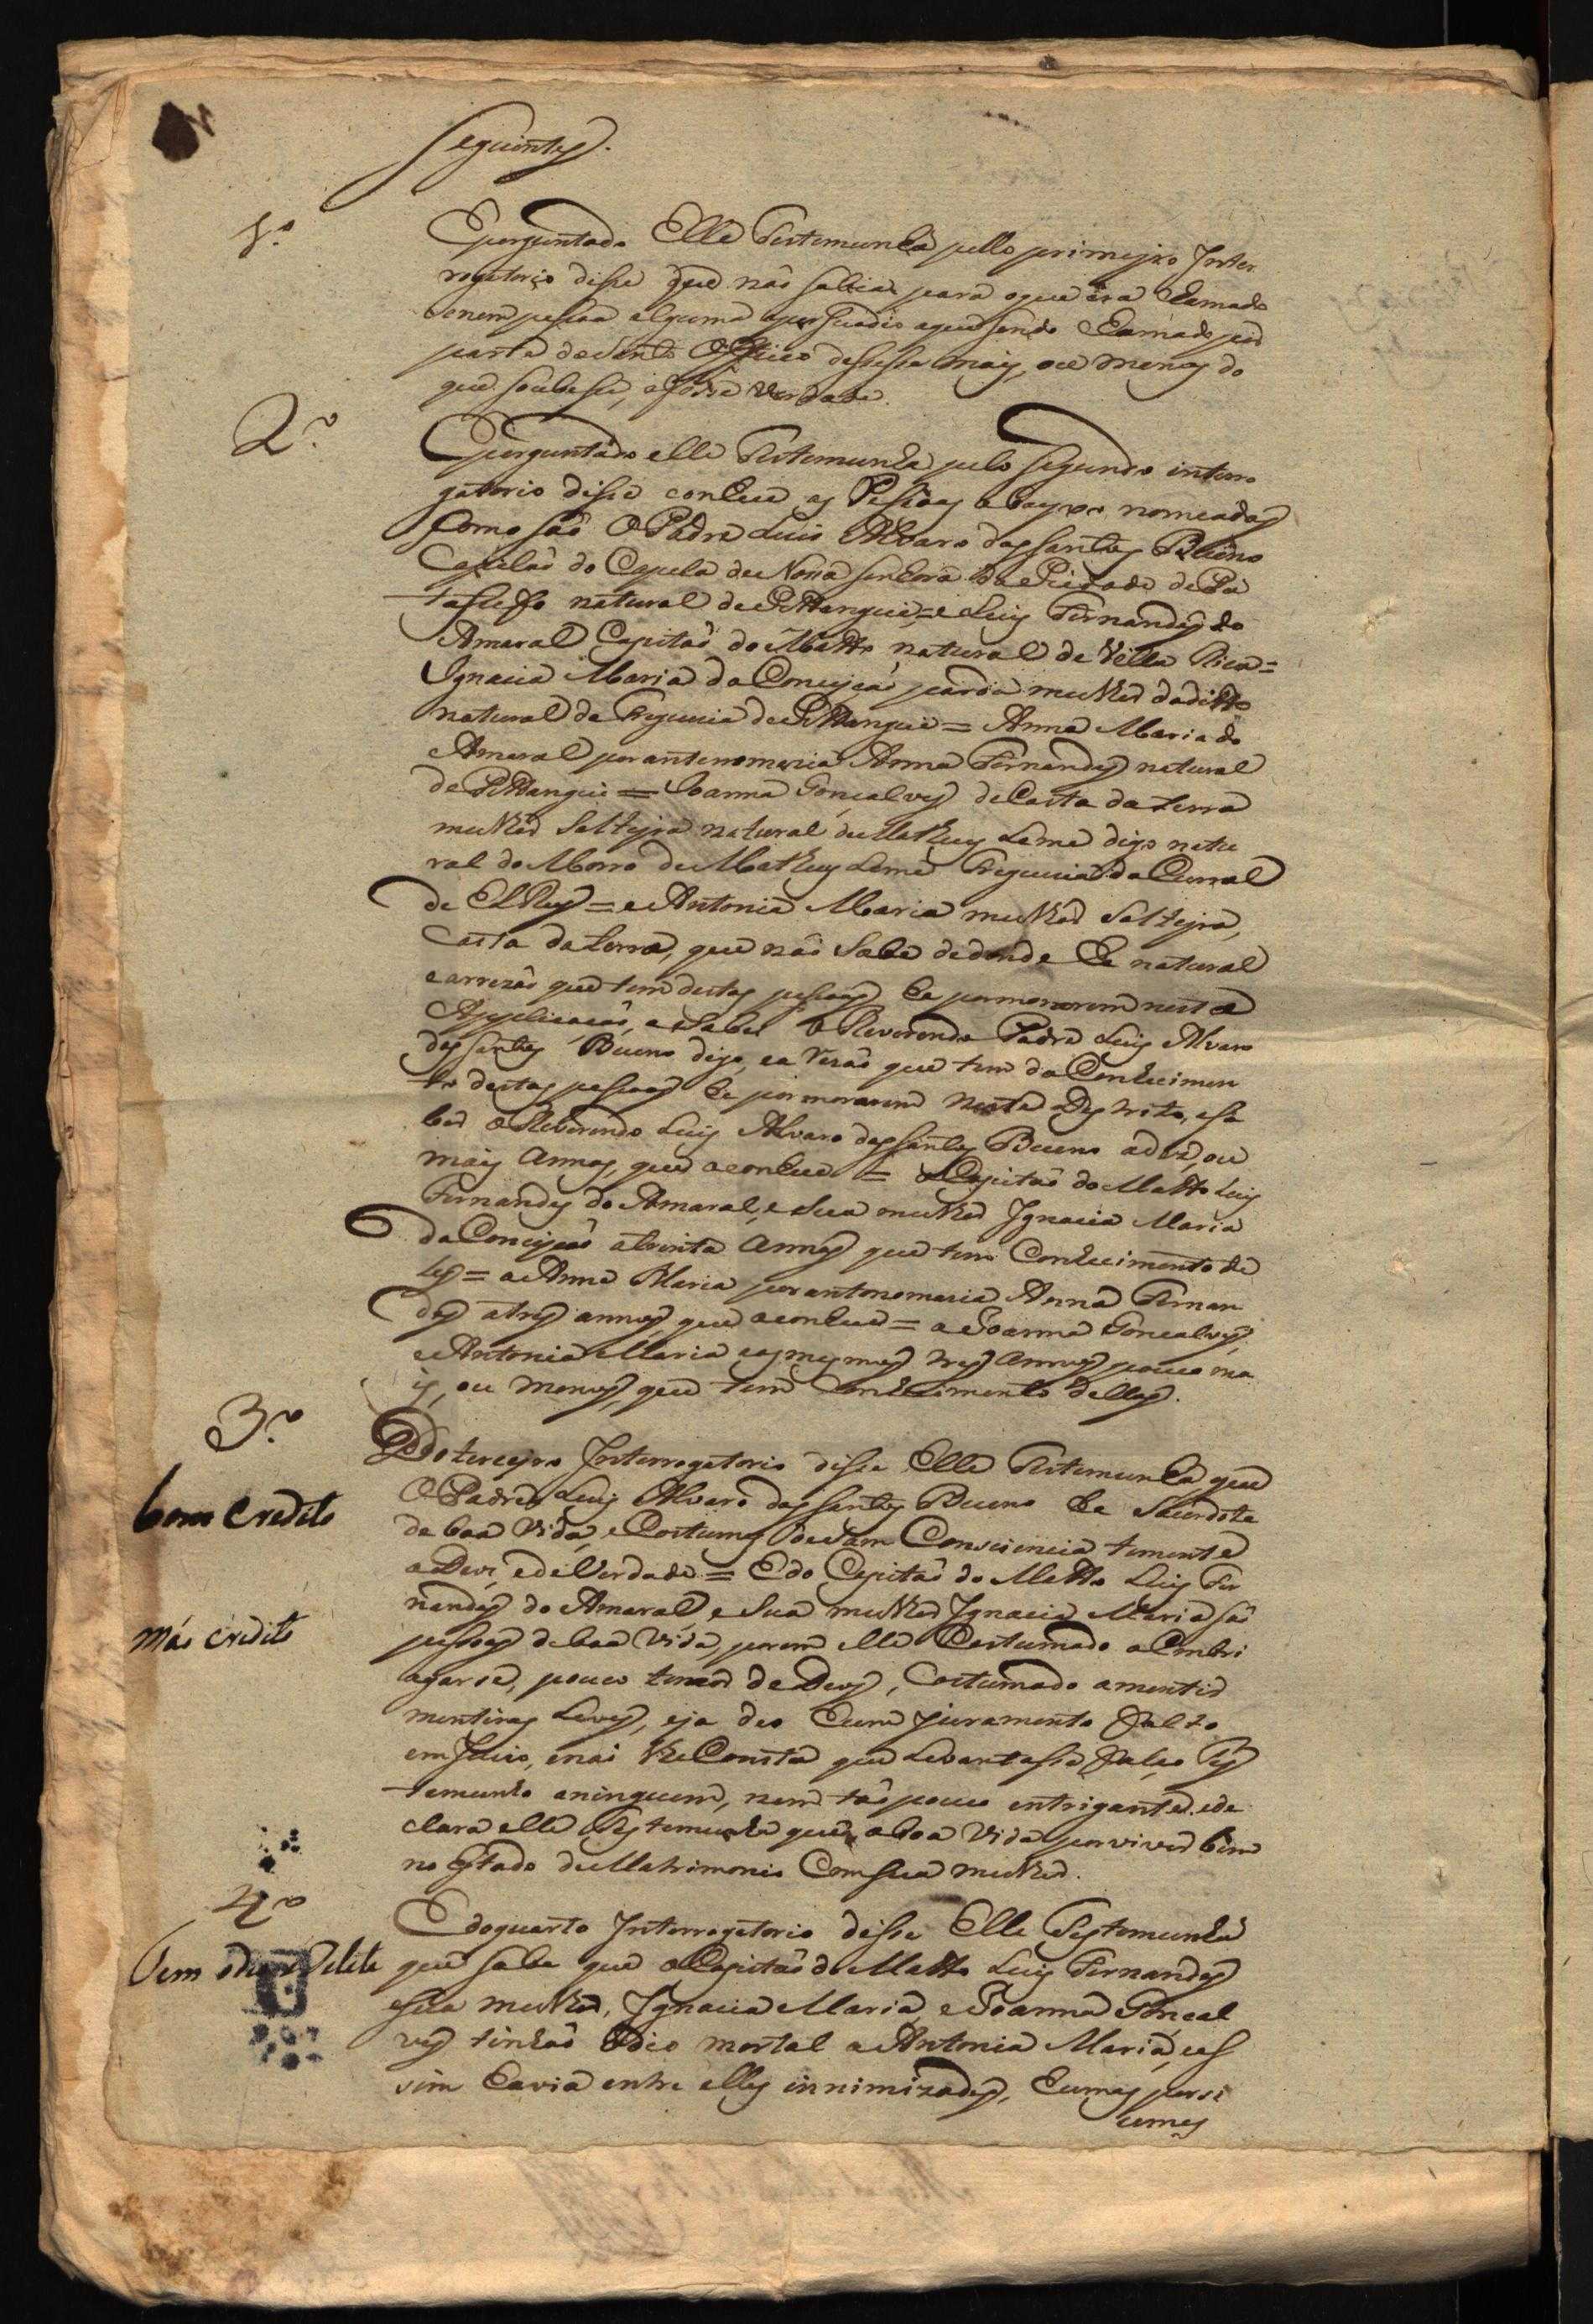 Seguintes.
1.º
E perguntado Elle Testemunha pello primeyro Inter
rogatorio disse que não sabia para o que era chamado
e nem pessoa alguma o persuadio a que sendo chamado por
parte do Santo Officio dissesse mais, ou menos do
que soubesse, e fosse verdade.
2.º
E perguntado elle Testemunha pelo segundo interro
gatorio disse conhece as Pessoas abayxo nomeadas
Como são O Padre Luis Alvaro dos Santos Bueno
Capelão da Capela de Nossa Senhora da Piedade de Pa
tafufo natural de Pittangui = e Luis Fernandes do
Amaral Capitão do Matto natural de Villa Rica =
Ignacia Maria da Conceyção parda mulher do ditto
natural da Freguezia de Pittangui = Anna Maria do
Amaral por antonomazia Anna Fernandes natural
de Pittangui = Joanna Gonçalves de Casta da terra
mulher Solteyra natural de Matheus Leme digo natu
ral do Morro de Matheus Leme Freguezia do Curral
de ElRey = e Antonia Maria mulher Solteyra,
Casta da terra, que não Sabe dedonde he natural
e a rrezão que tem destas pessoas he por morarem nesta
Applicação, a Saber O Reverendo Padre Luis Alvaro
dos Santos Bueno digo, e a rezão que tem do Conhecimen
to destas pessoas he por morarem neste Destrito, a Sa
ber o Reverendo Luis Alvaro dos Santos Bueno a dez, ou
mais annos, que o conhece = o Capitão do Matto Luis
Fernandes do Amaral, e Sua mulher Ignacia Maria
da Conceyção a trinta annos que tem Conhecimento de
les = a Anna Maria por antonomazia Anna Fernan
des a tres annos que a conhece = a Joanna Gonçalves,
e Antonia Maria os mesmos tres annos pouco ma
is, ou menos, que tem Conhecimento dellas.
3.º
E do terceyro Interrogatorio disse Elle Testemunha que
bom Credito
O Padre Luis Alvaro dos Santos Bueno he Sacerdote
de boa Vida, e Costumes de sam Consciencia temente
a Deos, e de Verdade = E do Capitão do Matto Luis Fer
nandes do Amaral, e Sua mulher Ignacia Maria são
máo credito
pessoas de boa Vida, porem elle Costumado a Embri
agarse, pouco temor de Deos, Costumado a mentir
mentiras Leves, e ja deo hum juramento falso
em Juizo, e não lhe Consta que Levantasse falso Tes
temunho a ninguem, nem tão pouco entrigante. e de
clara elle Testemunha que a boa Vida por viver bem
no Estado de Matrimonio Com Sua mulher.
4.º
E do quarto Interrogatorio disse Elle Testemunha
Tem odio
que Sabe que o Capitão do Matto Luis Fernandes
e Sua mulher, Ignacia Maria, e Joanna Gonçal
ves tinhão Odio mortal a Antonia Maria, e as
sim havia entre elles innimizades, humas por si
umes